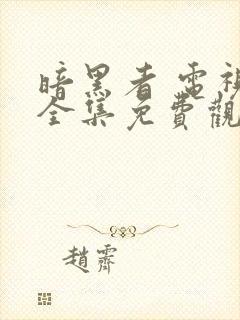 暗黑者電視
全集免費觀
趙霽